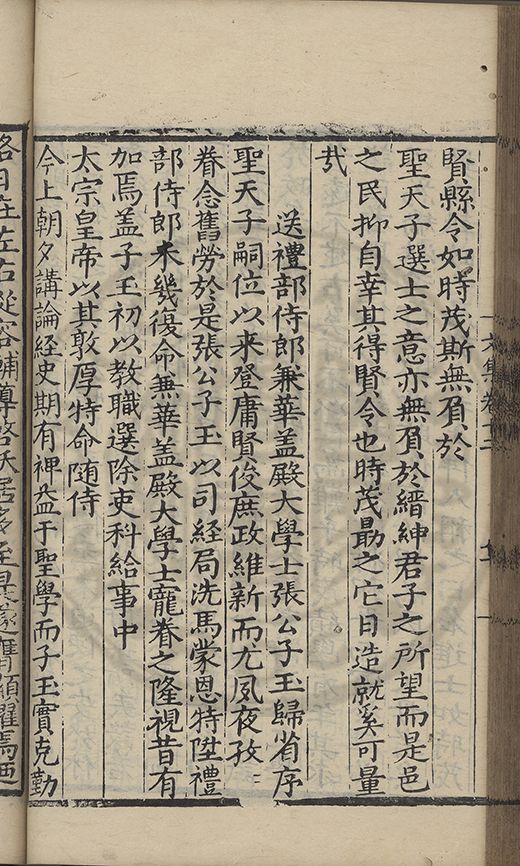 賢縣令如時茂斯無負於
聖天子選士之意亦無負於縉紳君子之所望而是邑
之民抑自幸其得賢令也時茂勗之它日造就奚可量
㢤
送禮部侍郎兼華盖殿大學士張公子玉歸省序
聖天子嗣位以来登庸賢俊庶政維新而尤夙夜孜〻
眷念舊勞於是張公子玉以司経局洗馬蒙恩特陞禮
部侍郎未幾復命兼華盖殿大學士寵眷之隆視昔有
加焉盖子玉初以教職選除吏科給事中
太宗皇帝以其敦厚特命随侍
今上朝夕講論経史期有裨益于聖學而子玉實克勤
恪日在左右從容輔導啓沃居多至是遂膺顯擢焉廼